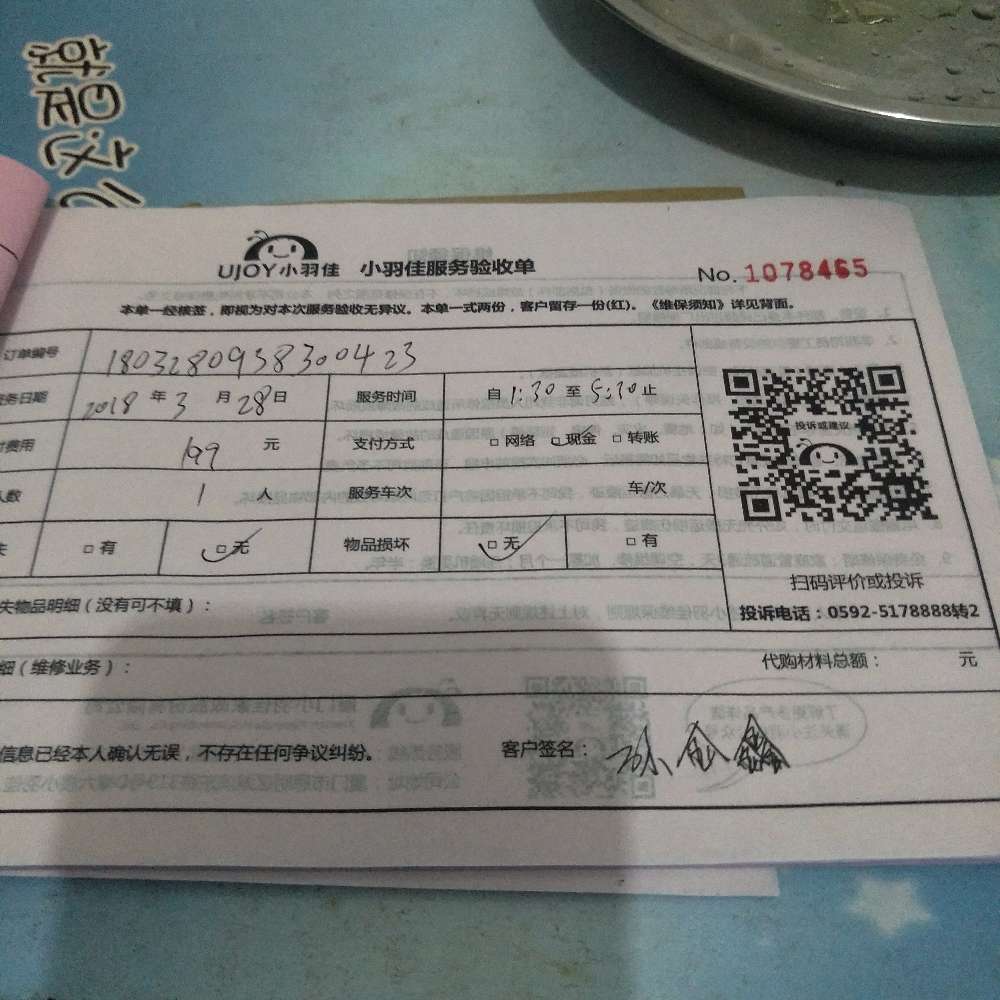 UJOY小羽佳 小羽佳服务验收单 No. 1078465
本单一经核签，即视为对本次服务验收无异议。本单一式两份，客户留存一份(红)。《维保须知》详见背面。
订单编号 1803280938300423
务日期 2018 年 3 月 28 日 服务时间 自 1:30 至 5:30 止
费用 199 元 支付方式 □ 网络 □ 现金 □ 转账
人数 1 人 服务车次 车/次
失 □ 有 □ 无 物品损坏 □ 无 □ 有
投诉或建议
扫码评价或投诉
投诉电话：0592-5178888转2
失物品明细（没有可不填）：
细（维修业务）： 代购材料总额： 元
信息已经本人确认无误，不存在任何争议纠纷。 客户签名：